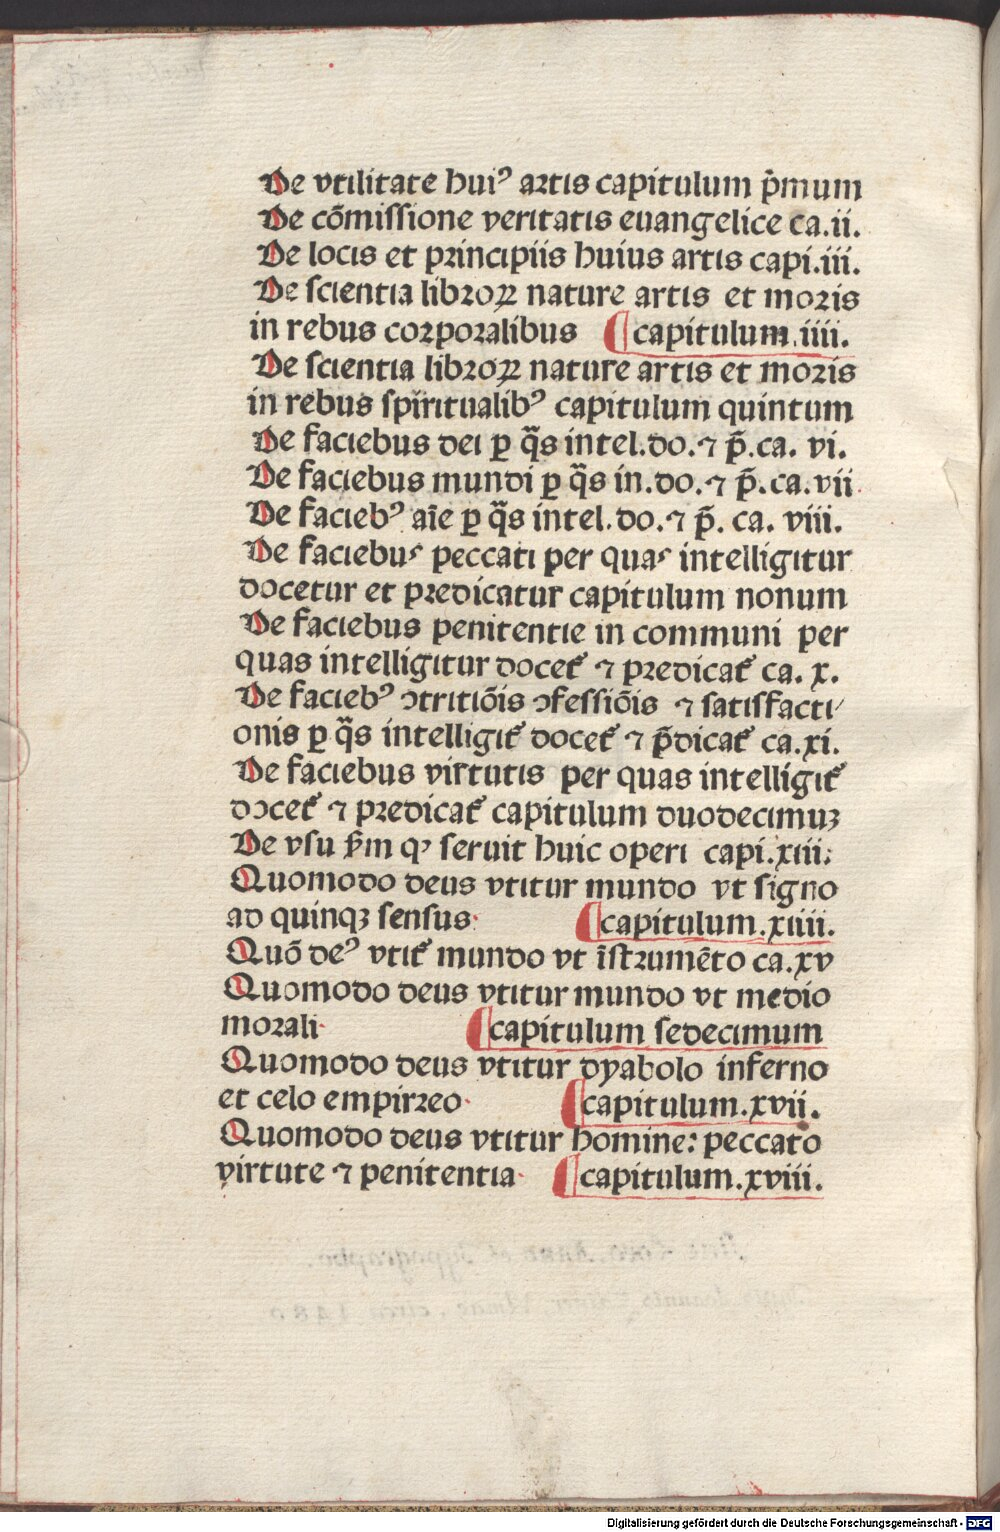 De vtilitate huiꝰ artis capitulum p̄mum
De cōmissione veritatis euangelice ca.ii.
De locis et principiis huius artis capi.iii.
De scientia libroꝝ nature artis et moris
in rebus corporalibus ¶ capitulum.iiii.
De scientia libroꝝ nature artis et moris
in rebus sp̄ritualibꝰ capitulum quintum
De faciebus dei ꝑ q̄s intel.do.⁊ p̄.ca. vi.
De faciebus mundi ꝑ q̄s in.do.⁊ p̄.ca.vii
De faciebꝰ aīe ꝑ q̄s intel.do.⁊ p̄. ca. viii.
De faciebus peccati per quas intelligitur
docetur et predicatur capitulum nonum
De faciebus penitentie in communi per
quas intelligitur docet᷑ ⁊ predicat᷑ ca. x.
De faciebꝰ ꝯtritiōis ꝯfessiōis ⁊ satisfacti/
onis ꝑ q̄s intelligit᷑ docet᷑ ⁊ p̄dicat᷑ ca.xi.
De faciebus virtutis per quas intelligit᷑
docet᷑ ⁊ predicat᷑ capitulum duodecimuꝫ
De vsu p̄m qꝰ seruit huic operi capi.xiii.
Quomodo deus vtitur mundo vt signo
ad quinqꝫ sensus. ¶ capitulum.xiiii.
Quō deꝰ vtit᷑ mundo vt īstrumēto ca.xv
Quomodo deus vtitur mundo vt medio
morali. ¶ capitulum sedecimum
Quomodo deus vtitur dyabolo inferno
et celo empirreo. ¶ capitulum.xvii.
Quomodo deus vtitur homine: peccato
virtute ⁊ penitentia. ¶ capitulum.xviii.
Digitalisierung gefördert durch die Deutsche Forschungsgemeinschaft - DFG